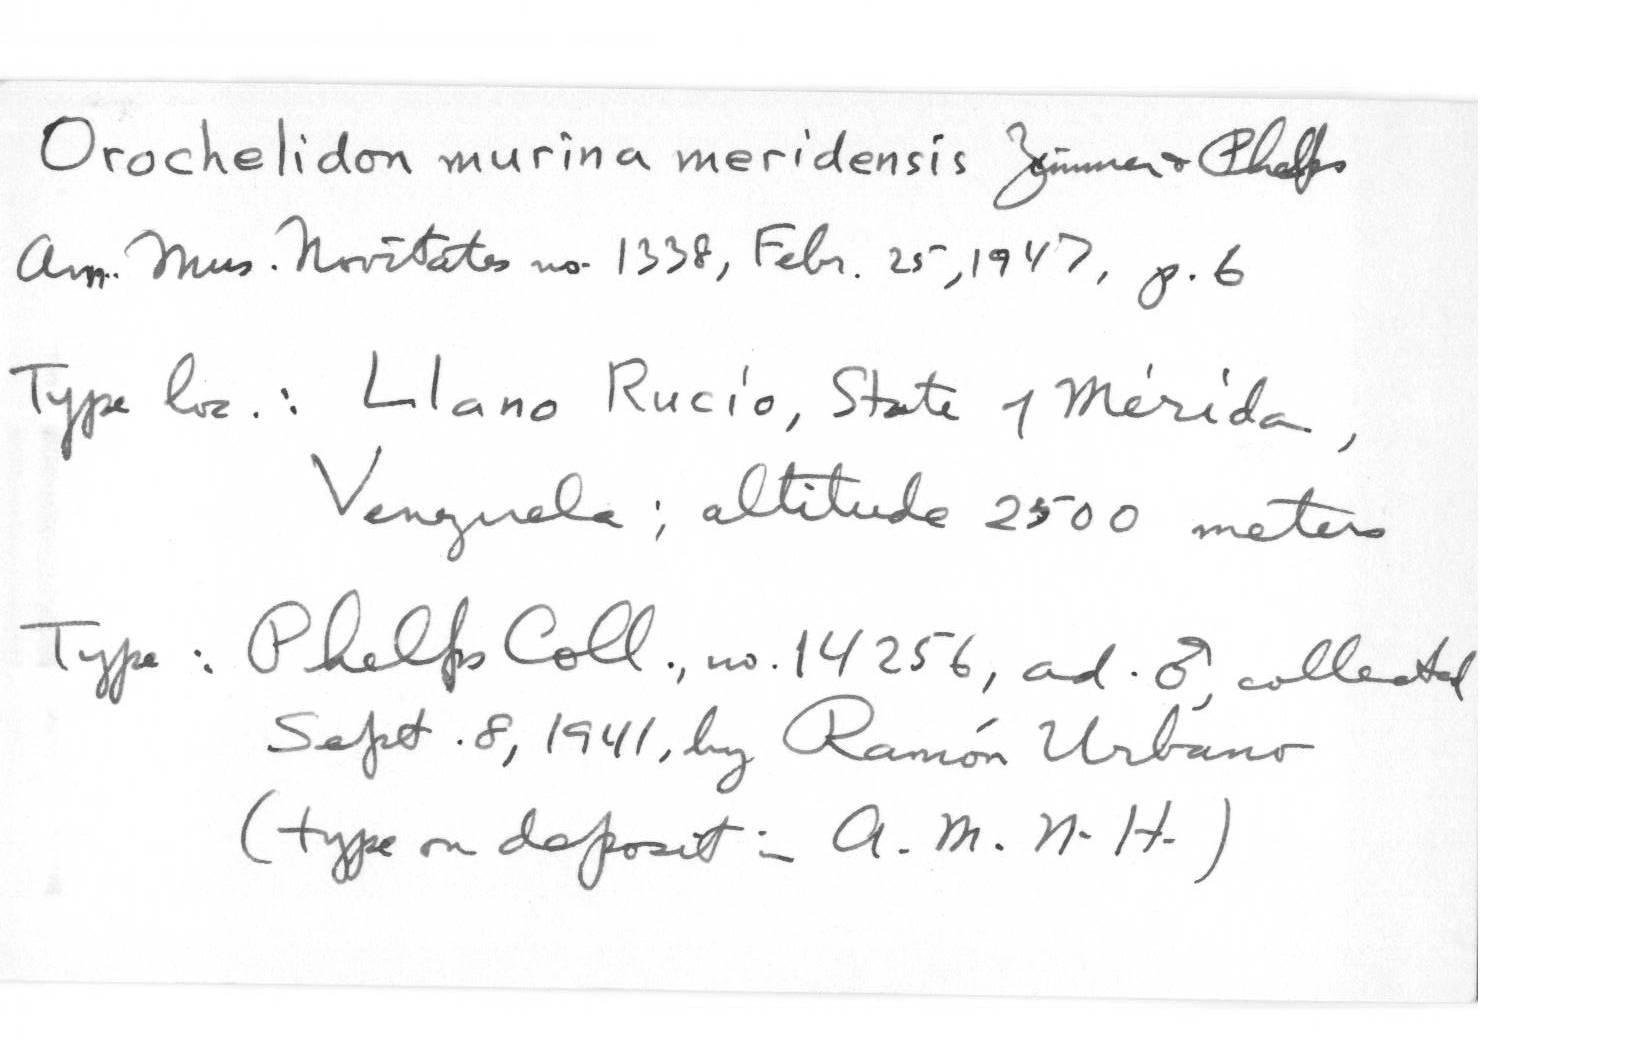 Orochelidon murina meridensis Zimmer & Phelps
Am. Mus. Novitates no. 1338, Febr. 25, 1947, p. 6
Type loc.: Llano Rucío, State of Mérida,
Venezuela; altitude 2500 meters
Type: Phelps Coll., no. 14256, ad. ♂, collected
Sept. 8, 1941, by Ramón Urbano
(type on deposit in A. M. N. H.)